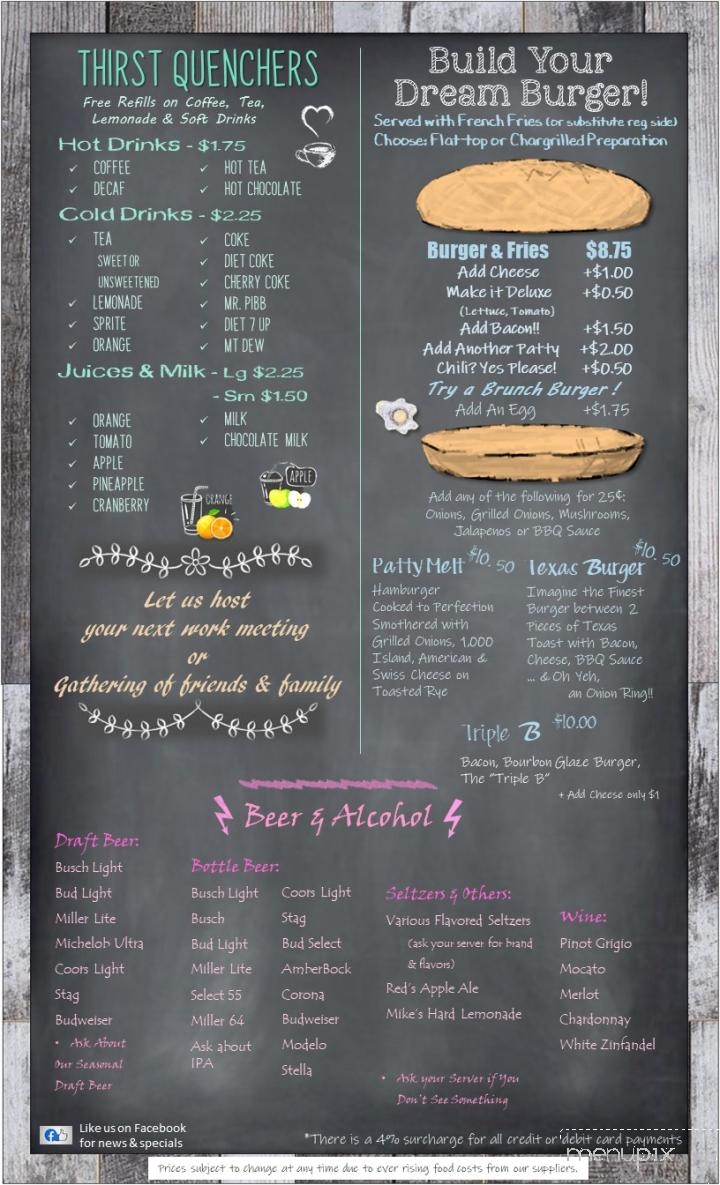 THIRST QUENCHERS
Free Refills on Coffee, Tea,
Lemonade & Soft Drinks
Hot Drinks - $1.75
COFFEE
DECAF
HOT TEA
HOT CHOCOLATE
Cold Drinks - $2.25
TEA
SWEET OR
UNSWEETENED
LEMONADE
SPRITE
ORANGE
COKE
DIET COKE
CHERRY COKE
MR. PIBB
DIET 7 UP
MT DEW
Juices & Milk - Lg $2.25
- Sm $1.50
ORANGE
TOMATO
APPLE
PINEAPPLE
CRANBERRY
MILK
CHOCOLATE MILK
APPLE
ORANGE
Let us host
your next work meeting
or
Gathering of friends & family
Build Your
Dream Burger!
Served with French Fries (or substitute reg side)
Choose: Flat-top or Chargrilled Preparation
Burger & Fries $8.75
Add Cheese +$1.00
Make it Deluxe +$0.50
(Lettuce, Tomato)
Add Bacon!! +$1.50
Add Another Patty +$2.00
Chili? Yes Please! +$0.50
Try a Brunch Burger !
Add An Egg +$1.75
Add any of the following for 25¢:
Onions, Grilled Onions, Mushrooms,
Jalapenos or BBQ Sauce
Patty Melt $10.50
Hamburger
Cooked to Perfection
Smothered with
Grilled Onions, 1,000
Island, American &
Swiss Cheese on
Toasted Rye
Texas Burger $10.50
Imagine the Finest
Burger between 2
Pieces of Texas
Toast with Bacon,
Cheese, BBQ Sauce
... & Oh Yeh,
an Onion Ring!!
Triple B $10.00
Bacon, Bourbon Glaze Burger,
The "Triple B"
+ Add Cheese only $1
Beer & Alcohol
Draft Beer:
Busch Light
Bud Light
Miller Lite
Michelob Ultra
Coors Light
Stag
Budweiser
• Ask About
Our Seasonal
Draft Beer
Bottle Beer:
Busch Light
Busch
Bud Light
Miller Lite
Select 55
Miller 64
Ask about
IPA
Coors Light
Stag
Bud Select
AmberBock
Corona
Budweiser
Modelo
Stella
Seltzers & Others:
Various Flavored Seltzers
(ask your server for brand
& flavors)
Red's Apple Ale
Mike's Hard Lemonade
• Ask your Server if You
Don't See Something
Wine:
Pinot Grigio
Mocato
Merlot
Chardonnay
White Zinfandel
Like us on Facebook
for news & specials
*There is a 4% surcharge for all credit or debit card payments
menupix
Prices subject to change at any time due to ever rising food costs from our suppliers.